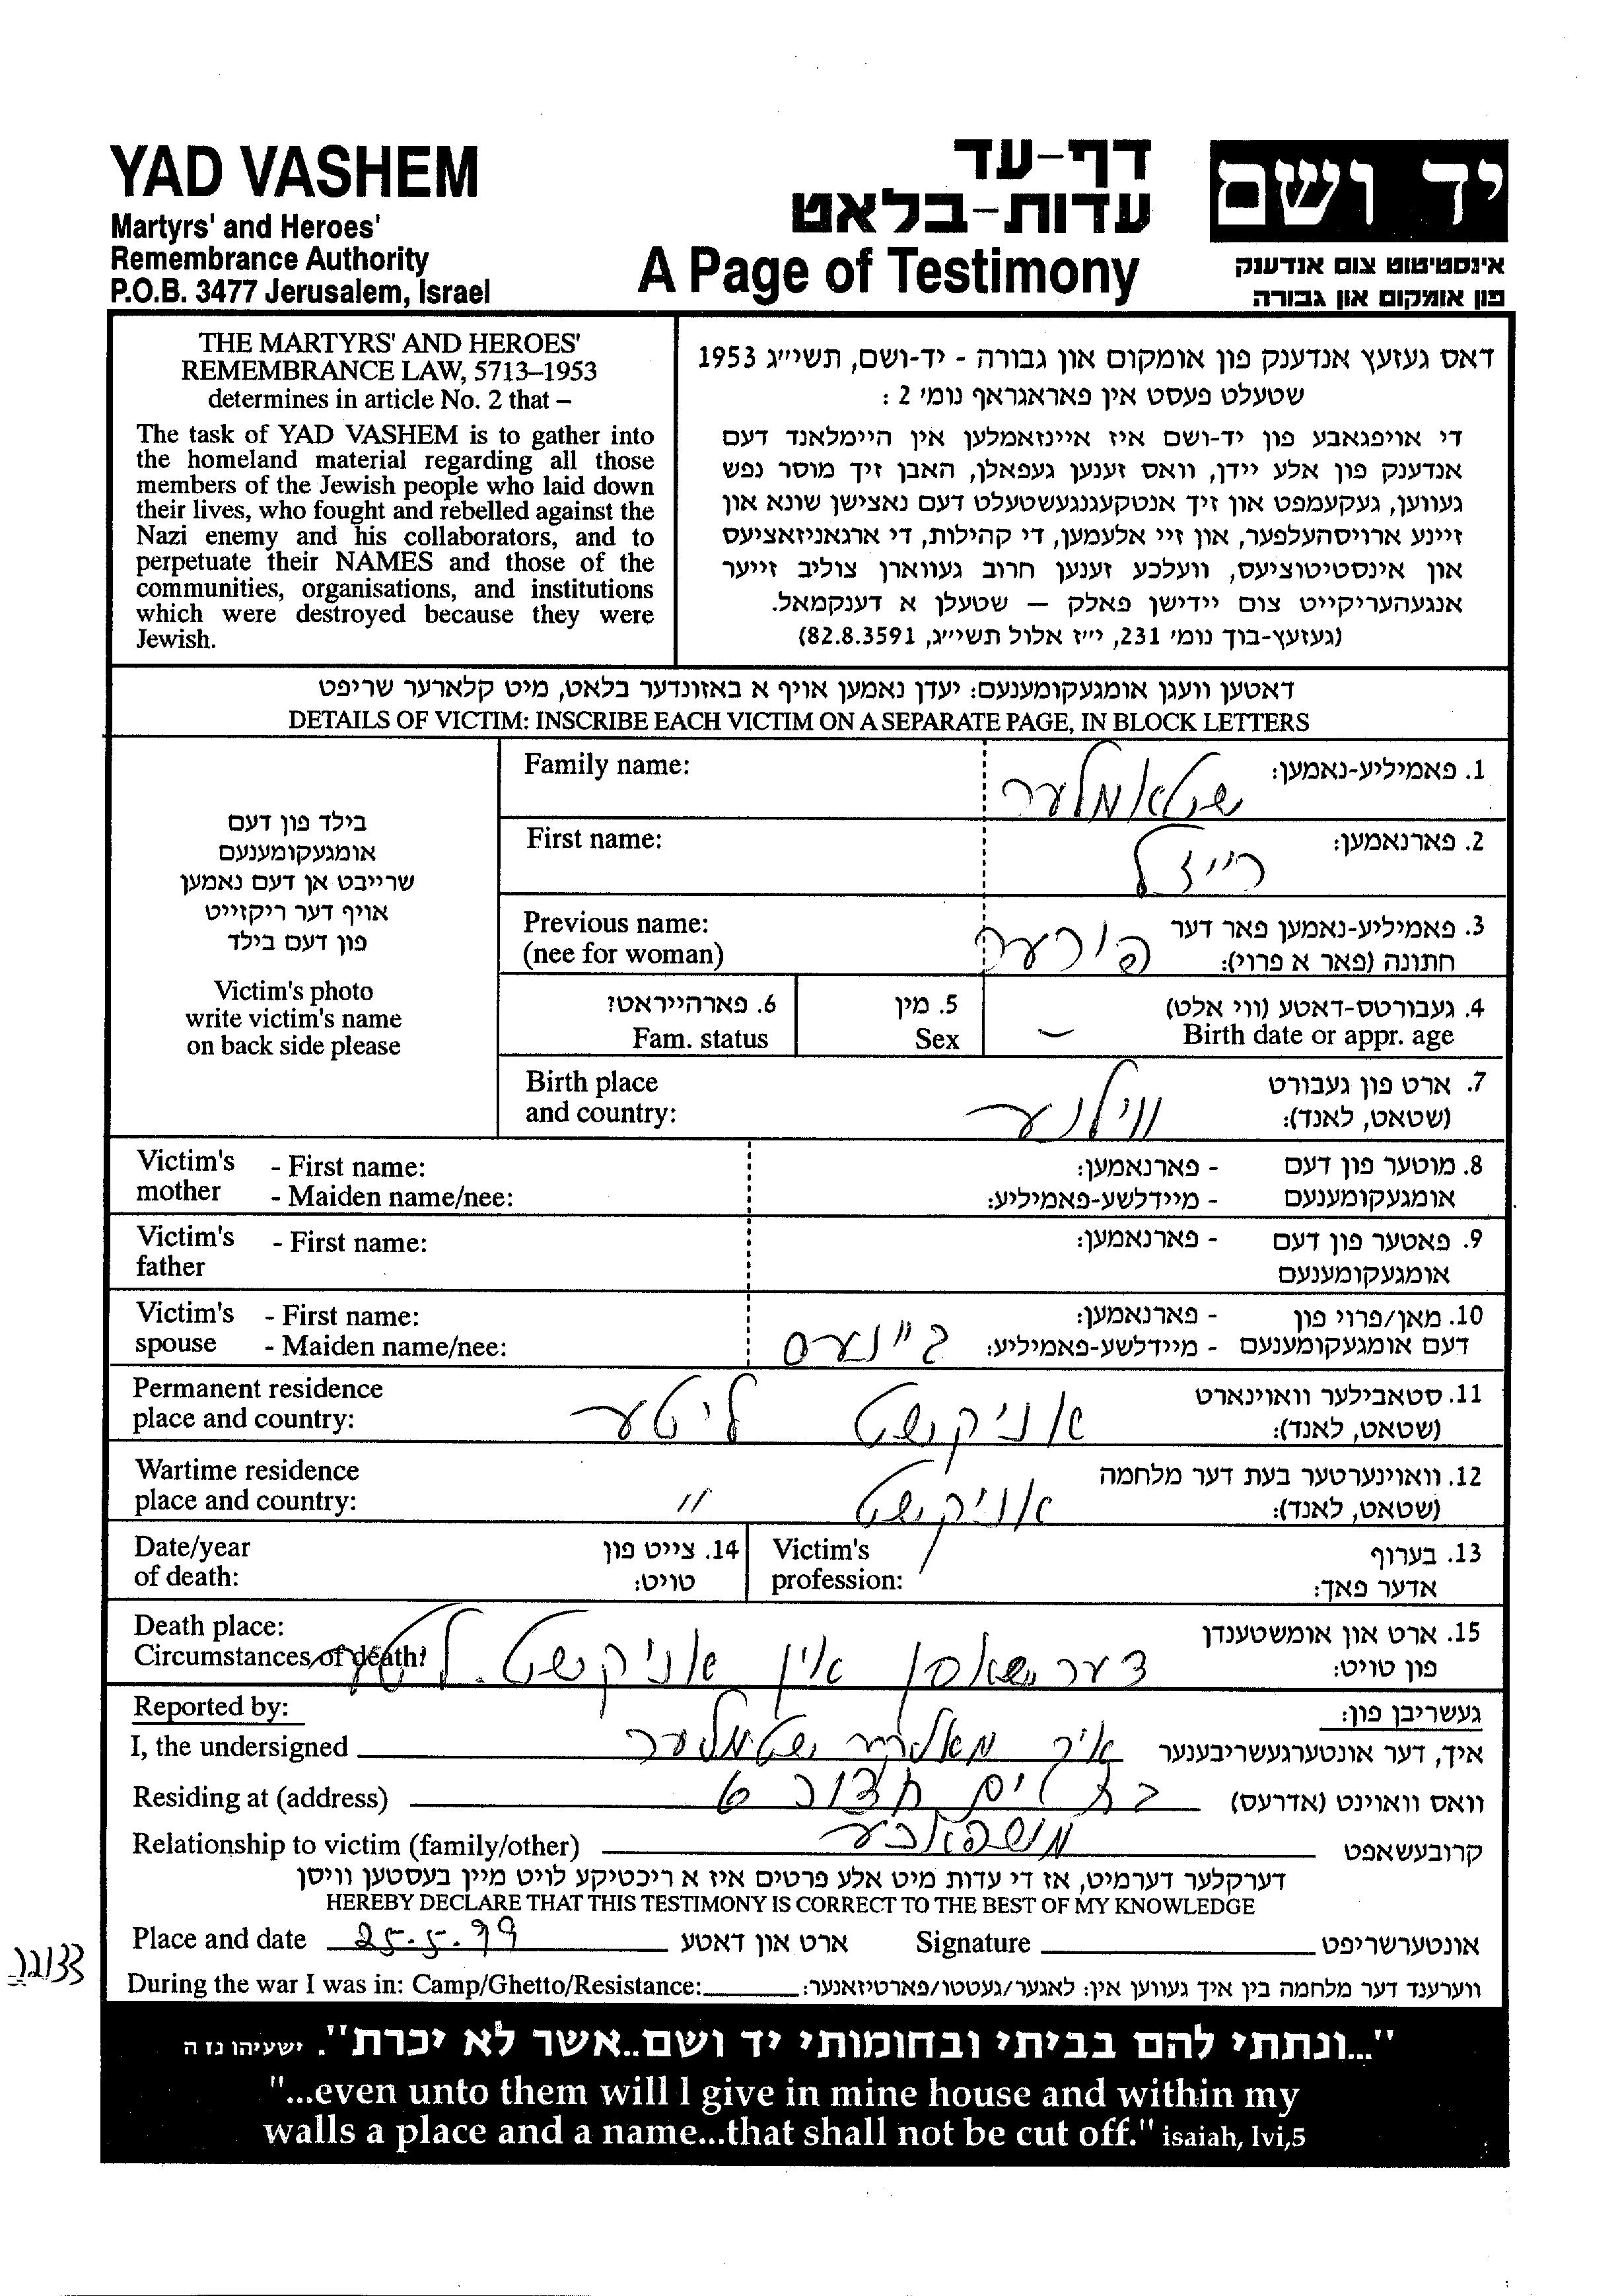 YAD VASHEM
Martyrs' and Heroes'
Remembrance Authority
P.O.B. 3477 Jerusalem, Israel
דף-עד
עדות-בלאט
A Page of Testimony
יד ושם
אינסטיטוט צום אנדענק
פון אומקום און גבורה
THE MARTYRS' AND HEROES'
REMEMBRANCE LAW, 5713–1953
determines in article No. 2 that –
The task of YAD VASHEM is to gather into
the homeland material regarding all those
members of the Jewish people who laid down
their lives, who fought and rebelled against the
Nazi enemy and his collaborators, and to
perpetuate their NAMES and those of the
communities, organisations, and institutions
which were destroyed because they were
Jewish.
דאס געזעץ אנדענק פון אומקום און גבורה - יד-ושם, תשי״ג 1953
שטעלט פעסט אין פאראגראף נומ׳ 2 :
די אויפגאבע פון יד-ושם איז איינזאמלען אין היימלאנד דעם
אנדענק פון אלע יידן, וואס זענען געפאלן, האבן זיך מוסר נפש
געווען, געקעמפט און זיך אנטקעגנגעשטעלט דעם נאצישן שונא און
זיינע ארויסהעלפער, און זיי אלעמען, די קהילות, די ארגאניזאציעס
און אינסטיטוציעס, וועלכע זענען חרוב געווארן צוליב זייער
אנגעהעריקייט צום יידישן פאלק — שטעלן א דענקמאל.
(געזעץ-בוך נומ׳ 231, י״ז אלול תשי״ג, 82.8.3591)
דאטען וועגן אומגעקומענעם: יעדן נאמען אויף א באזונדער בלאט, מיט קלארער שריפט
DETAILS OF VICTIM: INSCRIBE EACH VICTIM ON A SEPARATE PAGE, IN BLOCK LETTERS
בילד פון דעם
אומגעקומענעם
שרייבט אן דעם נאמען
אויף דער ריקזייט
פון דעם בילד
Victim's photo
write victim's name
on back side please
Family name:
1. פאמיליע-נאמען:
שטאמלער
First name:
2. פארנאמען:
רייזל
Previous name:
(nee for woman)
3. פאמיליע-נאמען פאר דער
חתונה (פאר א פרוי):
פורער
6. פארהייראט?
Fam. status
5. מין
Sex
4. געבורטס-דאטע (ווי אלט)
Birth date or appr. age
–
Birth place
and country:
7. ארט פון געבורט
(שטאט, לאנד):
ווילנע
Victim's mother
- First name:
- Maiden name/nee:
8. מוטער פון דעם
אומגעקומענעם
- פארנאמען:
- מיידלשע-פאמיליע:
Victim's father
- First name:
9. פאטער פון דעם
אומגעקומענעם
- פארנאמען:
Victim's spouse
- First name:
- Maiden name/nee:
10. מאן/פרוי פון
דעם אומגעקומענעם
- פארנאמען:
- מיידלשע-פאמיליע:
Permanent residence
place and country:
11. סטאבילער וואוינארט
(שטאט, לאנד):
אניקשט ליטע
Wartime residence
place and country:
12. וואוינערטער בעת דער מלחמה
(שטאט, לאנד):
אניקשט "
Date/year
of death:
14. צייט פון
טויט:
Victim's
profession:
13. בערוף
אדער פאך:
Death place:
Circumstances of death:
15. ארט און אומשטענדן
פון טויט:
דערשאסן אין אניקשט. ליטע
Reported by:
געשריבן פון:
I, the undersigned
איך, דער אונטערגעשריבענער
איך שטמלער
Residing at (address)
וואס וואוינט (אדרעס)
בת ים
Relationship to victim (family/other)
קרובעשאפט
משפאכע
דערקלער דערמיט, אז די עדות מיט אלע פרטים איז א ריכטיקע לויט מיין בעסטען וויסן
HEREBY DECLARE THAT THIS TESTIMONY IS CORRECT TO THE BEST OF MY KNOWLEDGE
Place and date 25.5.99 ארט און דאטע
Signature אונטערשריפט
During the war I was in: Camp/Ghetto/Resistance:
ווערענד דער מלחמה בין איך געווען אין: לאגער/געטטו/פארטיזאנער:
"...ונתתי להם בביתי ובחומותי יד ושם..אשר לא יכרת". ישעיהו נז ה
"...even unto them will I give in mine house and within my
walls a place and a name...that shall not be cut off." isaiah, lvi,5